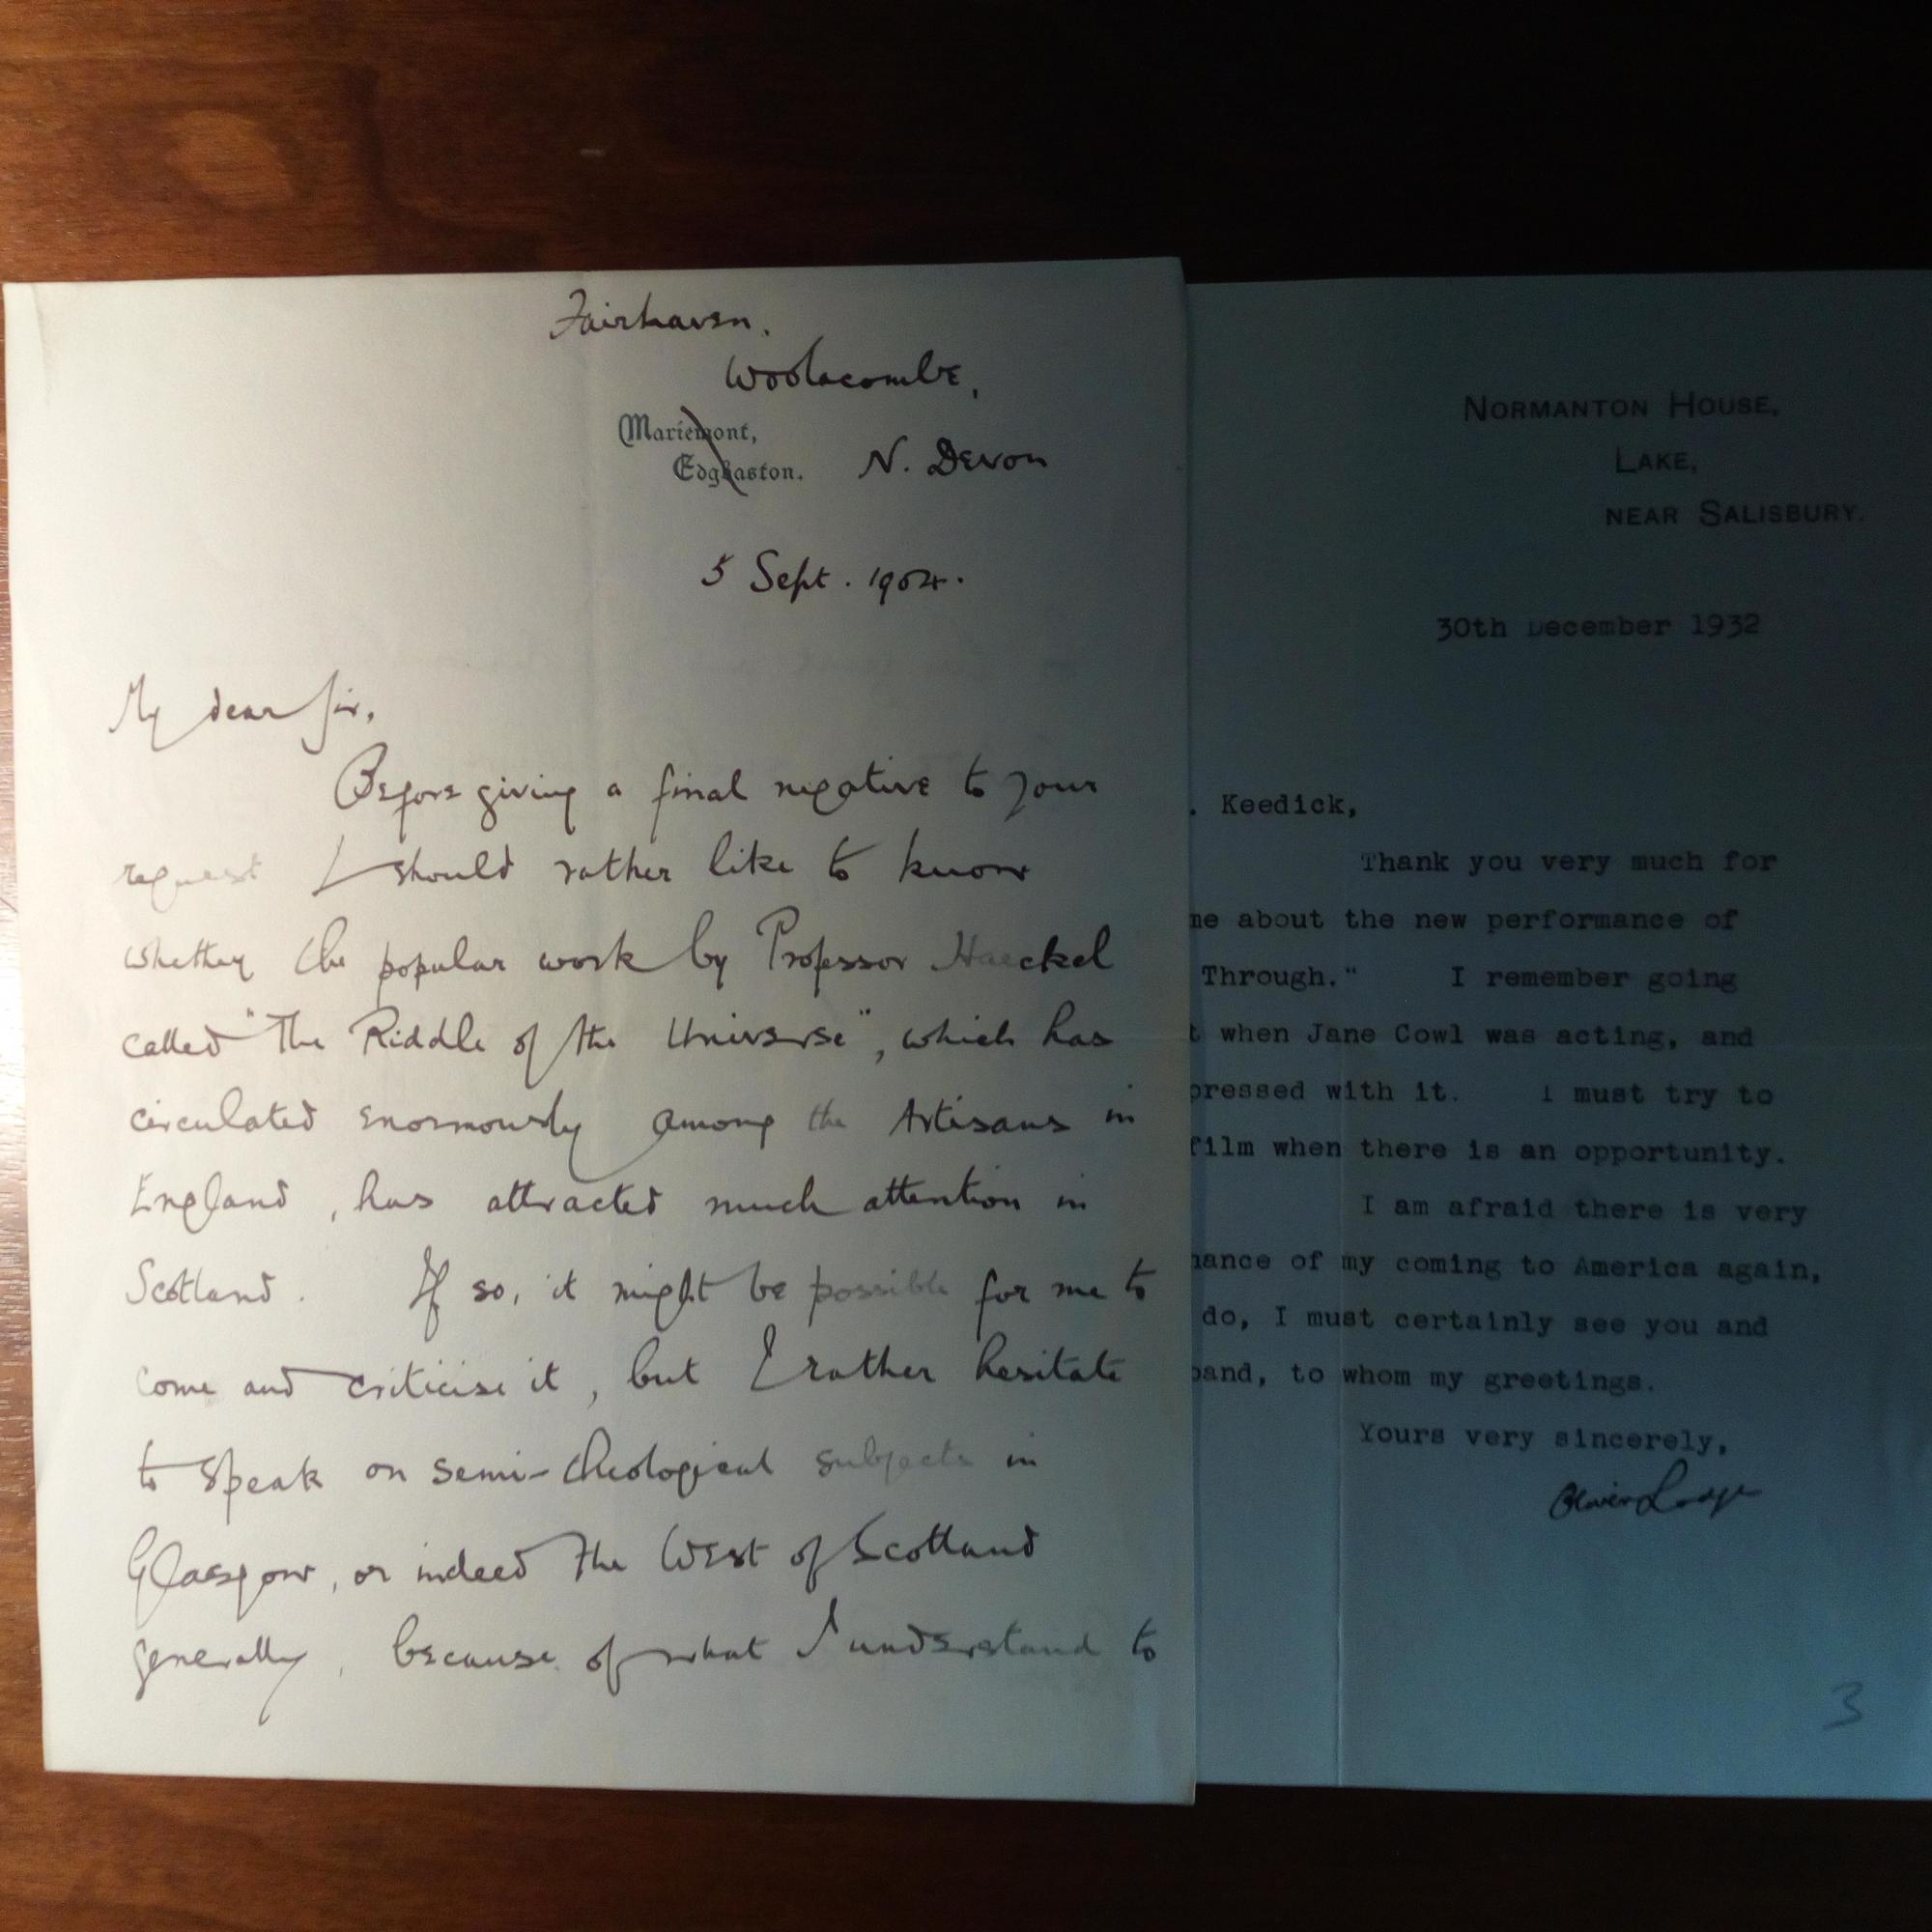 Fairhaven.
Woolacombe,
Mariemont,
Edgbaston. N. Devon
5 Sept. 1904.
My dear Sir,
Before giving a final negative to your
request I should rather like to know
whether the popular work by Professor Haeckel
called "The Riddle of the Universe", which has
circulated enormously among the Artisans in
England, has attracted much attention in
Scotland. If so, it might be possible for me to
come and criticise it, but I rather hesitate
to speak on semi-theological subjects in
Glasgow, or indeed the West of Scotland
generally, because of what I understand to
NORMANTON HOUSE,
LAKE,
NEAR SALISBURY.
30th December 1932
. Keedick,
Thank you very much for
me about the new performance of
Through." I remember going
t when Jane Cowl was acting, and
pressed with it. I must try to
film when there is an opportunity.
I am afraid there is very
hance of my coming to America again,
do, I must certainly see you and
band, to whom my greetings.
Yours very sincerely,
Oliver Lodge
3